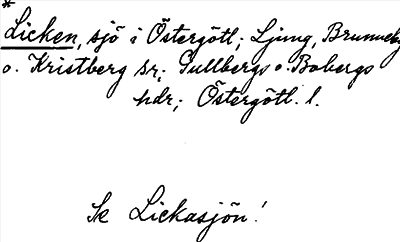 *
Licken, sjö i Östergötl; Ljung, Brunneby
o. Kristberg sr; Gullbergs o. Bobergs
hdr; Östergötl. l.
Se Lickasjön!